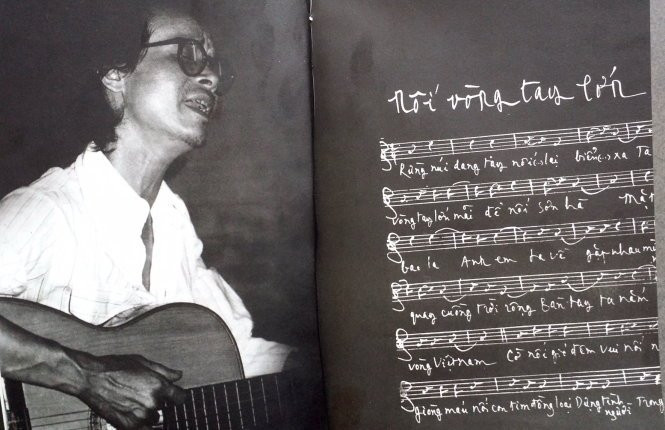 nối vòng tay lớn
Rừng núi dang tay nối(..)lại biển(..) xa Ta
vòng tay lớn mãi để nối sơn hà Mặt
bao la Anh em ta về gặp nhau
quay cuồng trời rộng Bàn tay ta nắm
vòng Việt nam Cờ nối gió đêm vui nối n
giòng máu nối con tim đồng loại Dựng tình Trong
người